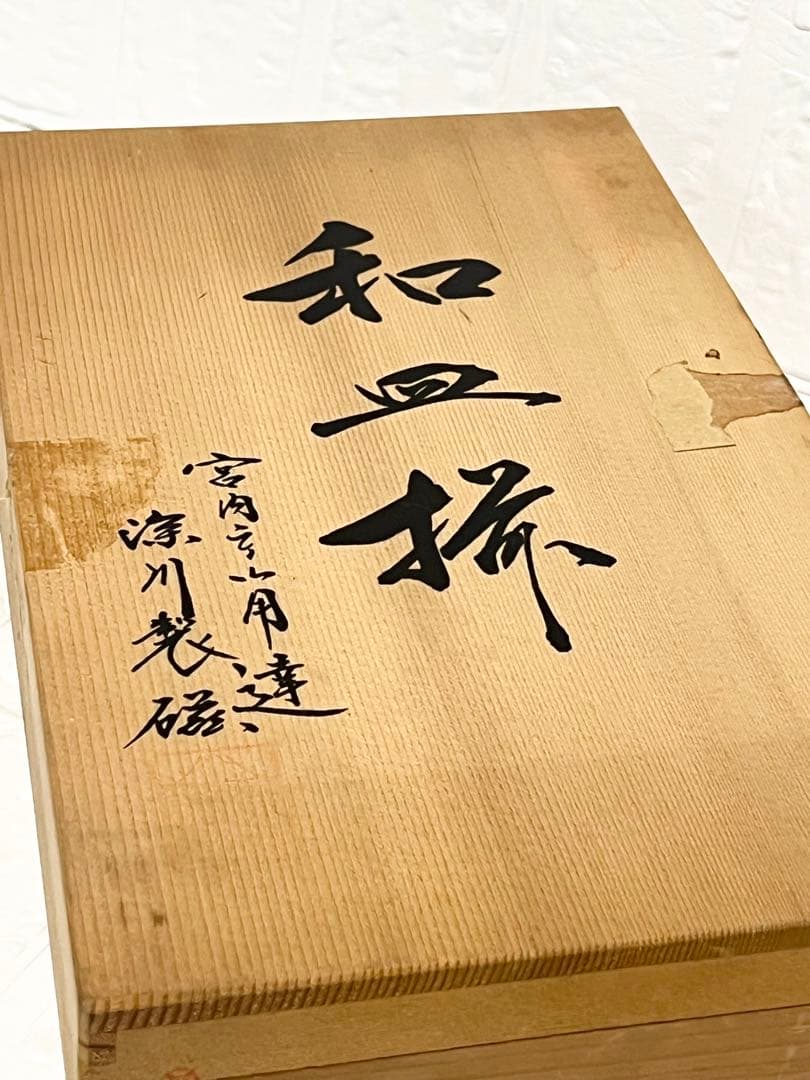 和皿揃
宮内庁御用達
深川製磁